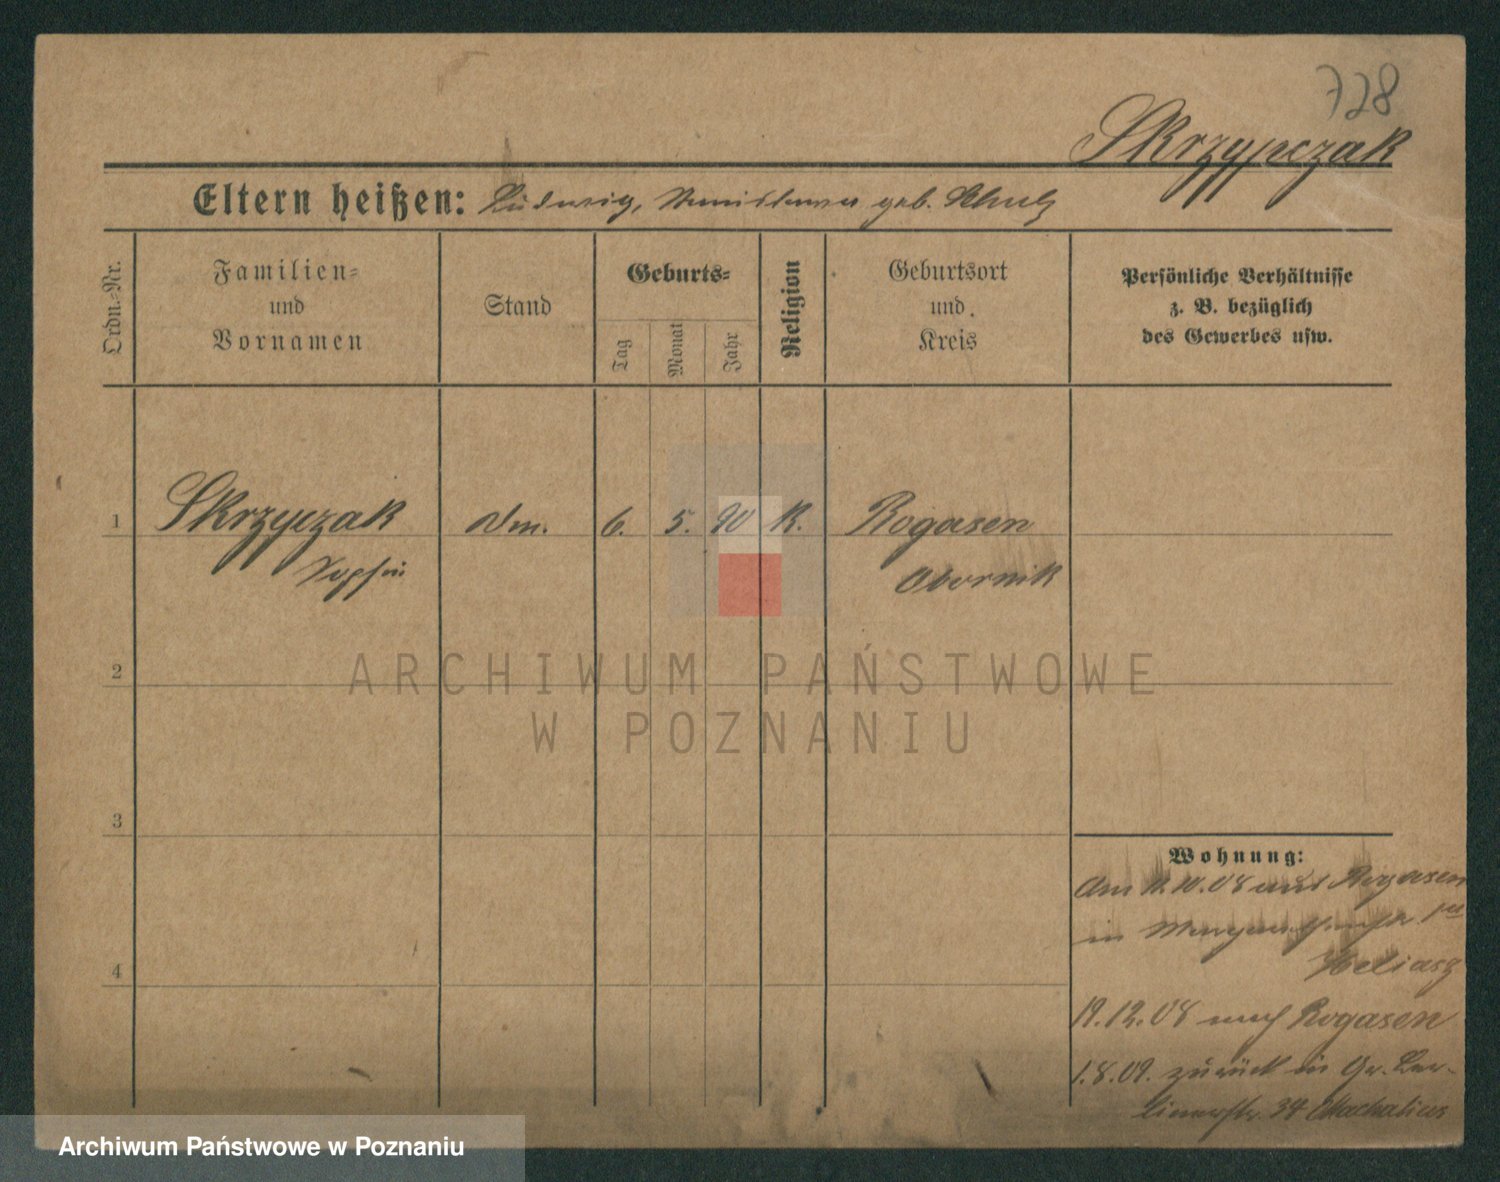 728
Skrzypczak
Eltern heißen: Ludwig, Stanislawa geb. Schulz
Ordn.-Nr.
Familien-
und
Vornamen
Stand
Geburts-
Tag
Monat
Jahr
Religion
Geburtsort
und
Kreis
Persönliche Verhältnisse
z. B. bezüglich
des Gewerbes usw.
1 Skrzypczak Dm. 6. 5. 90 K. Rogasen
Sophie Obornik
2
ARCHIWUM PAŃSTWOWE
W POZNANIU
3
4
Wohnung:
Am 11.10.08 aus Rogasen
in
Heliasz
19.12.08 nach Rogasen
1.8.09. zurück in Gr. Ber-
linerstr. 34
Archiwum Państwowe w Poznaniu